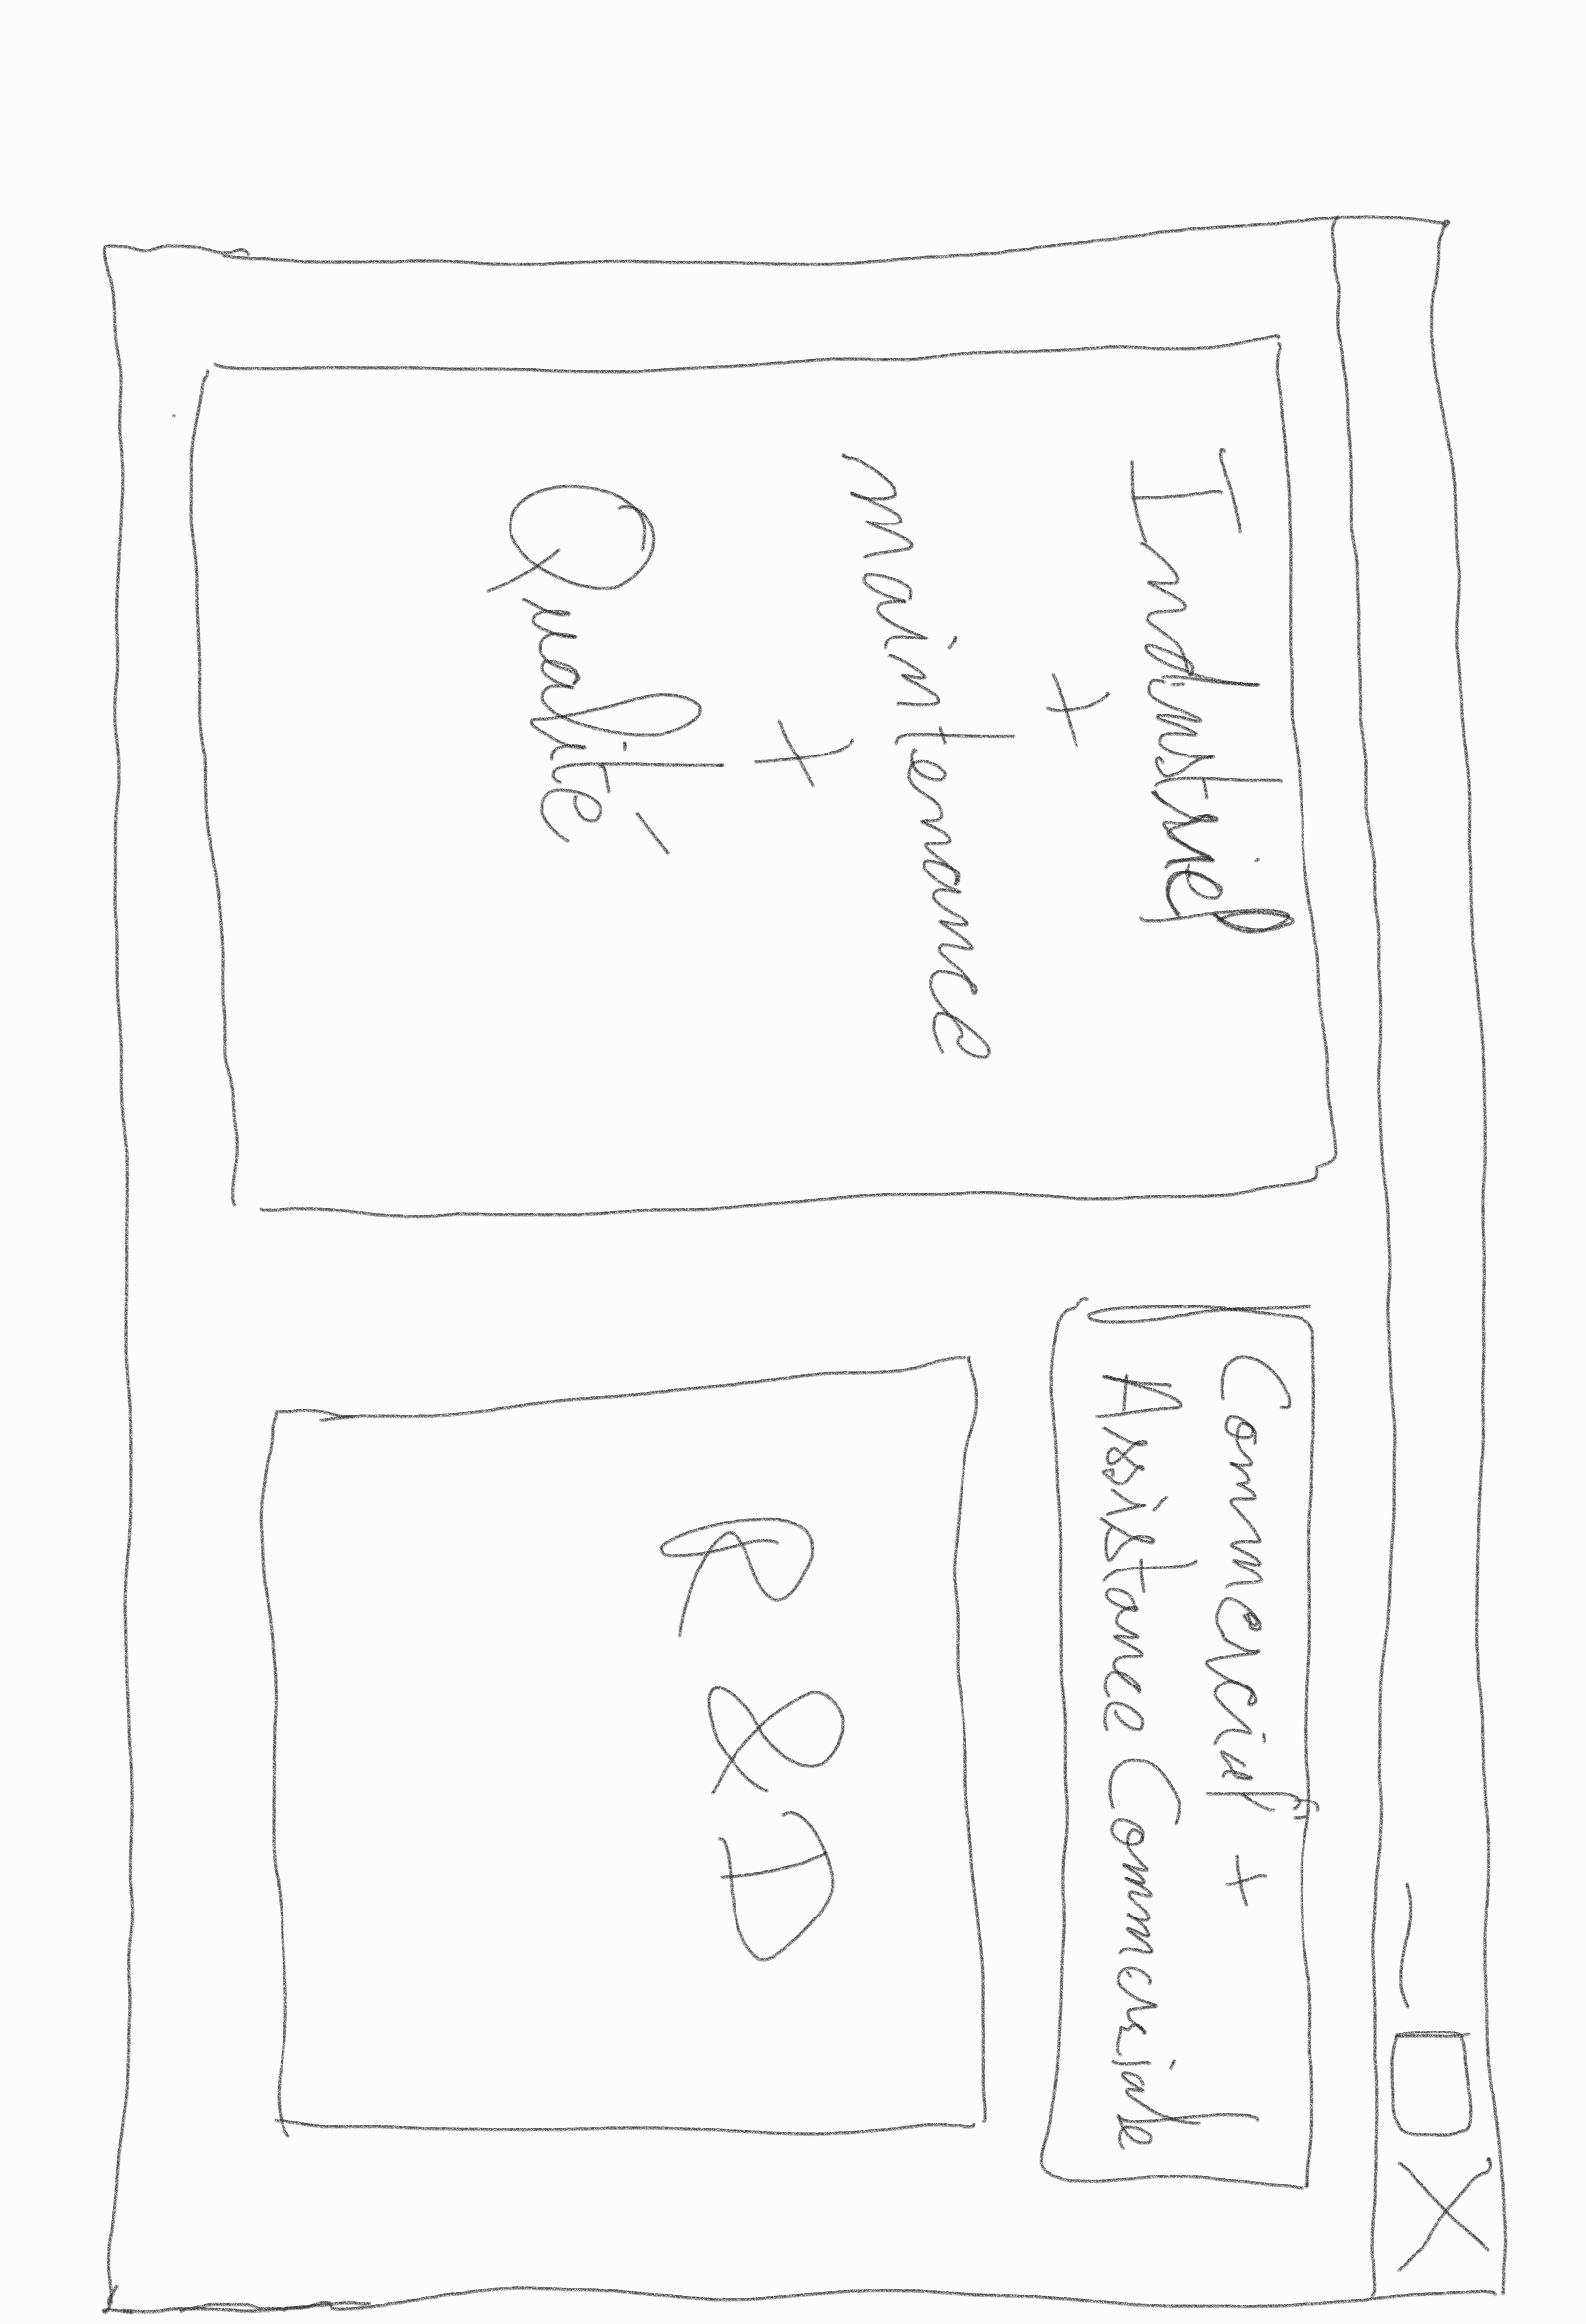 Industriel
+
maintenance
+
Qualité
Commercial +
Assistance Commerciale
R & D